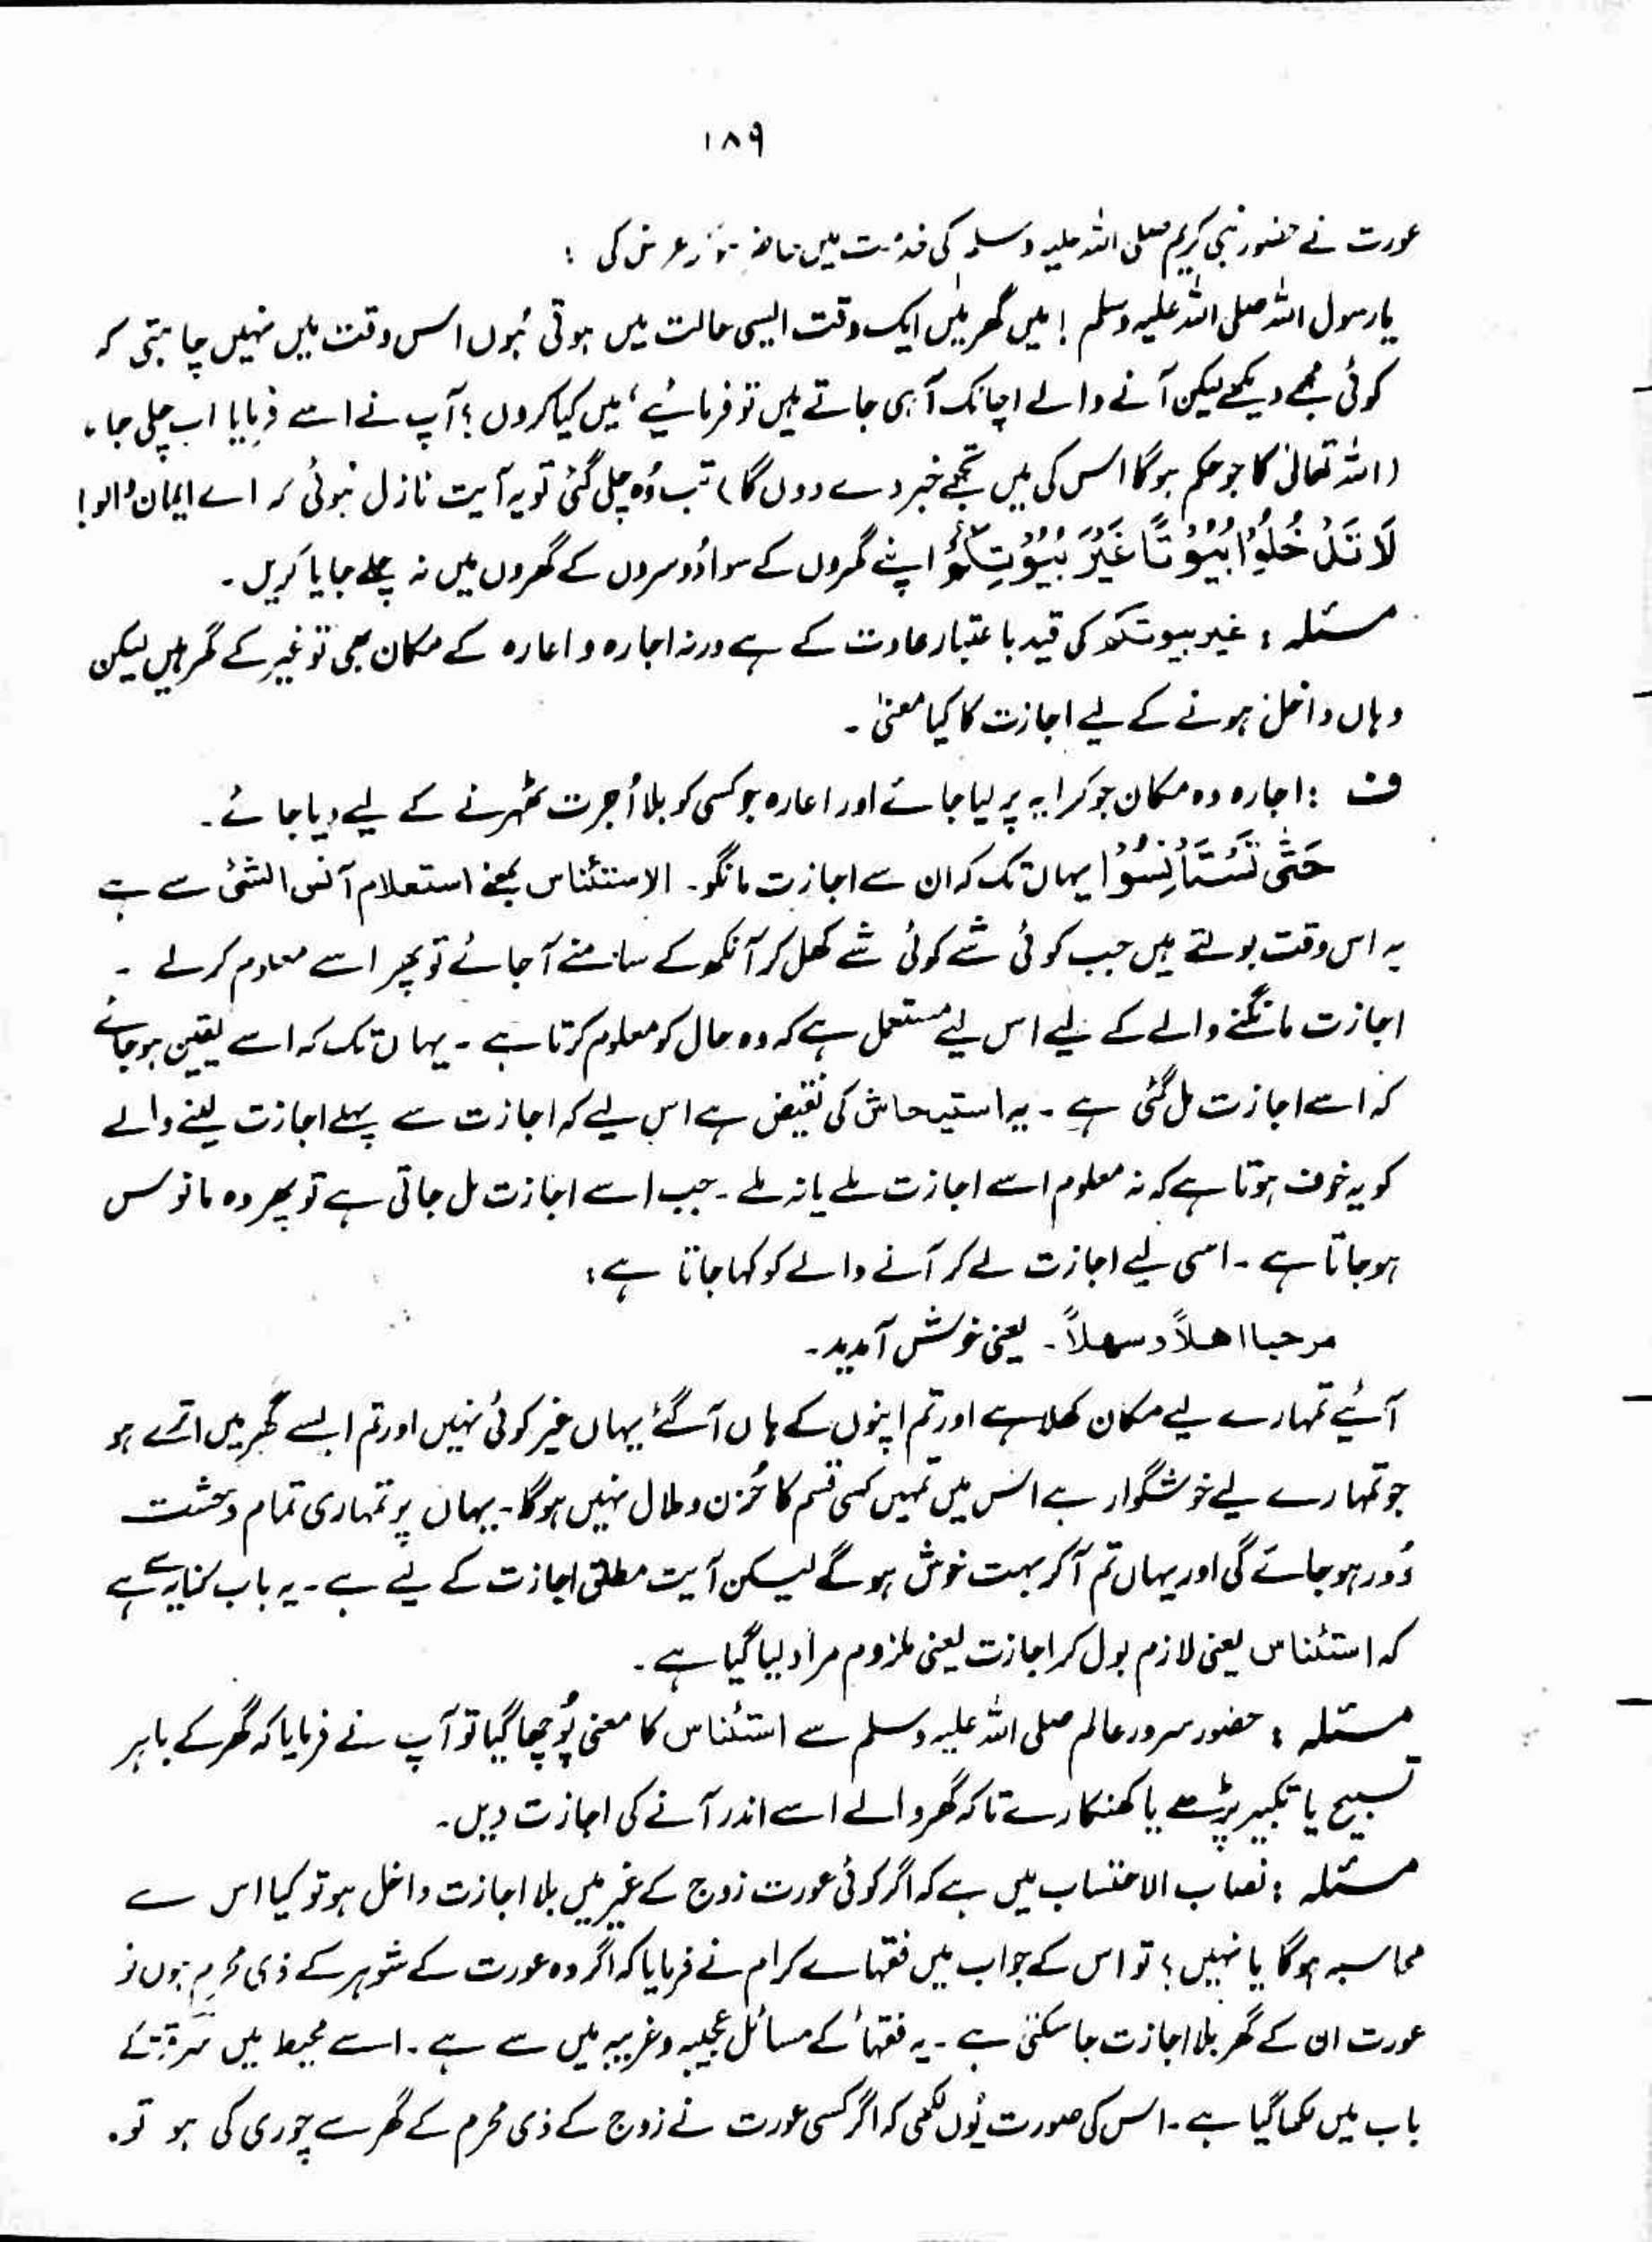 ۱۸۹
عورت نے حضور نبی کریم صلی اللہ علیہ وسلم کی خدمت میں حاضر ہو کر عرض کی :
یارسول اللہ صلی اللہ علیہ وسلم ! میں گھر میں ایک وقت ایسی حالت میں ہوتی ہُوں اس وقت میں نہیں چاہتی کہ
کوئی مجھے دیکھے لیکن آنے والے اچانک آہی جاتے ہیں تو فرمائیے ، میں کیا کروں ؟ آپ نے اسے فرمایا اب چلی جا ،
(اللہ تعالیٰ کا جو حکم ہوگا اس کی میں تجھے خبر دے دوں گا) تب وُہ چلی گئی تو یہ آیت نازل ہُوئی کہ اے ایمان والو!
لَا تَدْخُلُوْا بُيُوْتًا غَيْرَ بُيُوْتِكُمْ اپنے گھروں کے سوا دُوسروں کے گھروں میں نہ چلے جایا کریں ۔
مسئلہ : غیر بیوتکم کی قید باعتبار عادت کے ہے ورنہ اجارہ و اعارہ کے مکان بھی تو غیر کے گھر ہیں لیکن
وہاں داخل ہونے کے لیے اجازت کا کیا معنیٰ ۔
ف : اجارہ وہ مکان جو کرایہ پر لیا جائے اور اعارہ جو کسی کو بلا اُجرت ٹھہرنے کے لیے دیا جائے ۔
حَتّٰى تَسْتَأْنِسُوْا یہاں تک کہ ان سے اجازت مانگو ۔ الاستئناس بمعنے استعلام آنس الشئ سے ہے
یہ اس وقت بولتے ہیں جب کوئی شے کوئی شے کھل کر آنکھ کے سامنے آجائے تو پھر اسے معلوم کرلے ۔
اجازت مانگنے والے کے لیے اس لیے مستعمل ہے کہ وہ حال کو معلوم کرتا ہے ۔ یہاں تک کہ اسے یقین ہوجائے
کہ اسے اجازت مل گئی ہے ۔ یہ استیحاش کی نقیض ہے اس لیے کہ اجازت سے پہلے اجازت لینے والے
کو یہ خوف ہوتا ہے کہ نہ معلوم اسے اجازت ملے یا نہ ملے ۔ جب اسے اجازت مل جاتی ہے تو پھر وہ مانوس
ہوجاتا ہے ۔ اسی لیے اجازت لے کر آنے والے کو کہا جاتا ہے :
مرحبا اھلاً وسھلاً ۔ یعنی خوش آمدید ۔
آئیے تمہارے لیے مکان کھلا ہے اور تم اپنوں کے ہاں آگئے یہاں غیر کوئی نہیں اور تم ایسے گھر میں اترے ہو
جو تمہارے لیے خوشگوار ہے اس میں تمہیں کسی قسم کا حُزن و ملال نہیں ہوگا ۔ یہاں پر تمہاری تمام وحشت
دُور ہوجائے گی اور یہاں تم آکر بہت خوش ہو گے لیکن آیت مطلق اجازت کے لیے ہے ۔ یہ باب کنایہ سے ہے
کہ استئناس یعنی لازم بول کر اجازت یعنی ملزوم مراد لیا گیا ہے ۔
مسئلہ : حضور سرور عالم صلی اللہ علیہ وسلم سے استئناس کا معنی پُوچھا گیا تو آپ نے فرمایا کہ گھر کے باہر
تسبیح یا تکبیر پڑھے یا کھنکارے تاکہ گھر والے اسے اندر آنے کی اجازت دیں ۔
مسئلہ : نصاب الاحتساب میں ہے کہ اگر کوئی عورت زوج کے غیر میں بلا اجازت داخل ہو تو کیا اس سے
محاسبہ ہوگا یا نہیں ؟ تو اس کے جواب میں فقہائے کرام نے فرمایا کہ اگر وہ عورت کے شوہر کے ذی محرم ہوں تو
عورت ان کے گھر بلا اجازت جاسکتی ہے ۔ یہ فقہاً کے مسائل عجیبہ و غریبہ میں سے ہے ۔ اسے محیط میں سرقہ کے
باب میں لکھا گیا ہے ۔ اس کی صورت یُوں لکھی کہ اگر کسی عورت نے زوج کے ذی محرم کے گھر سے چوری کی ہو تو